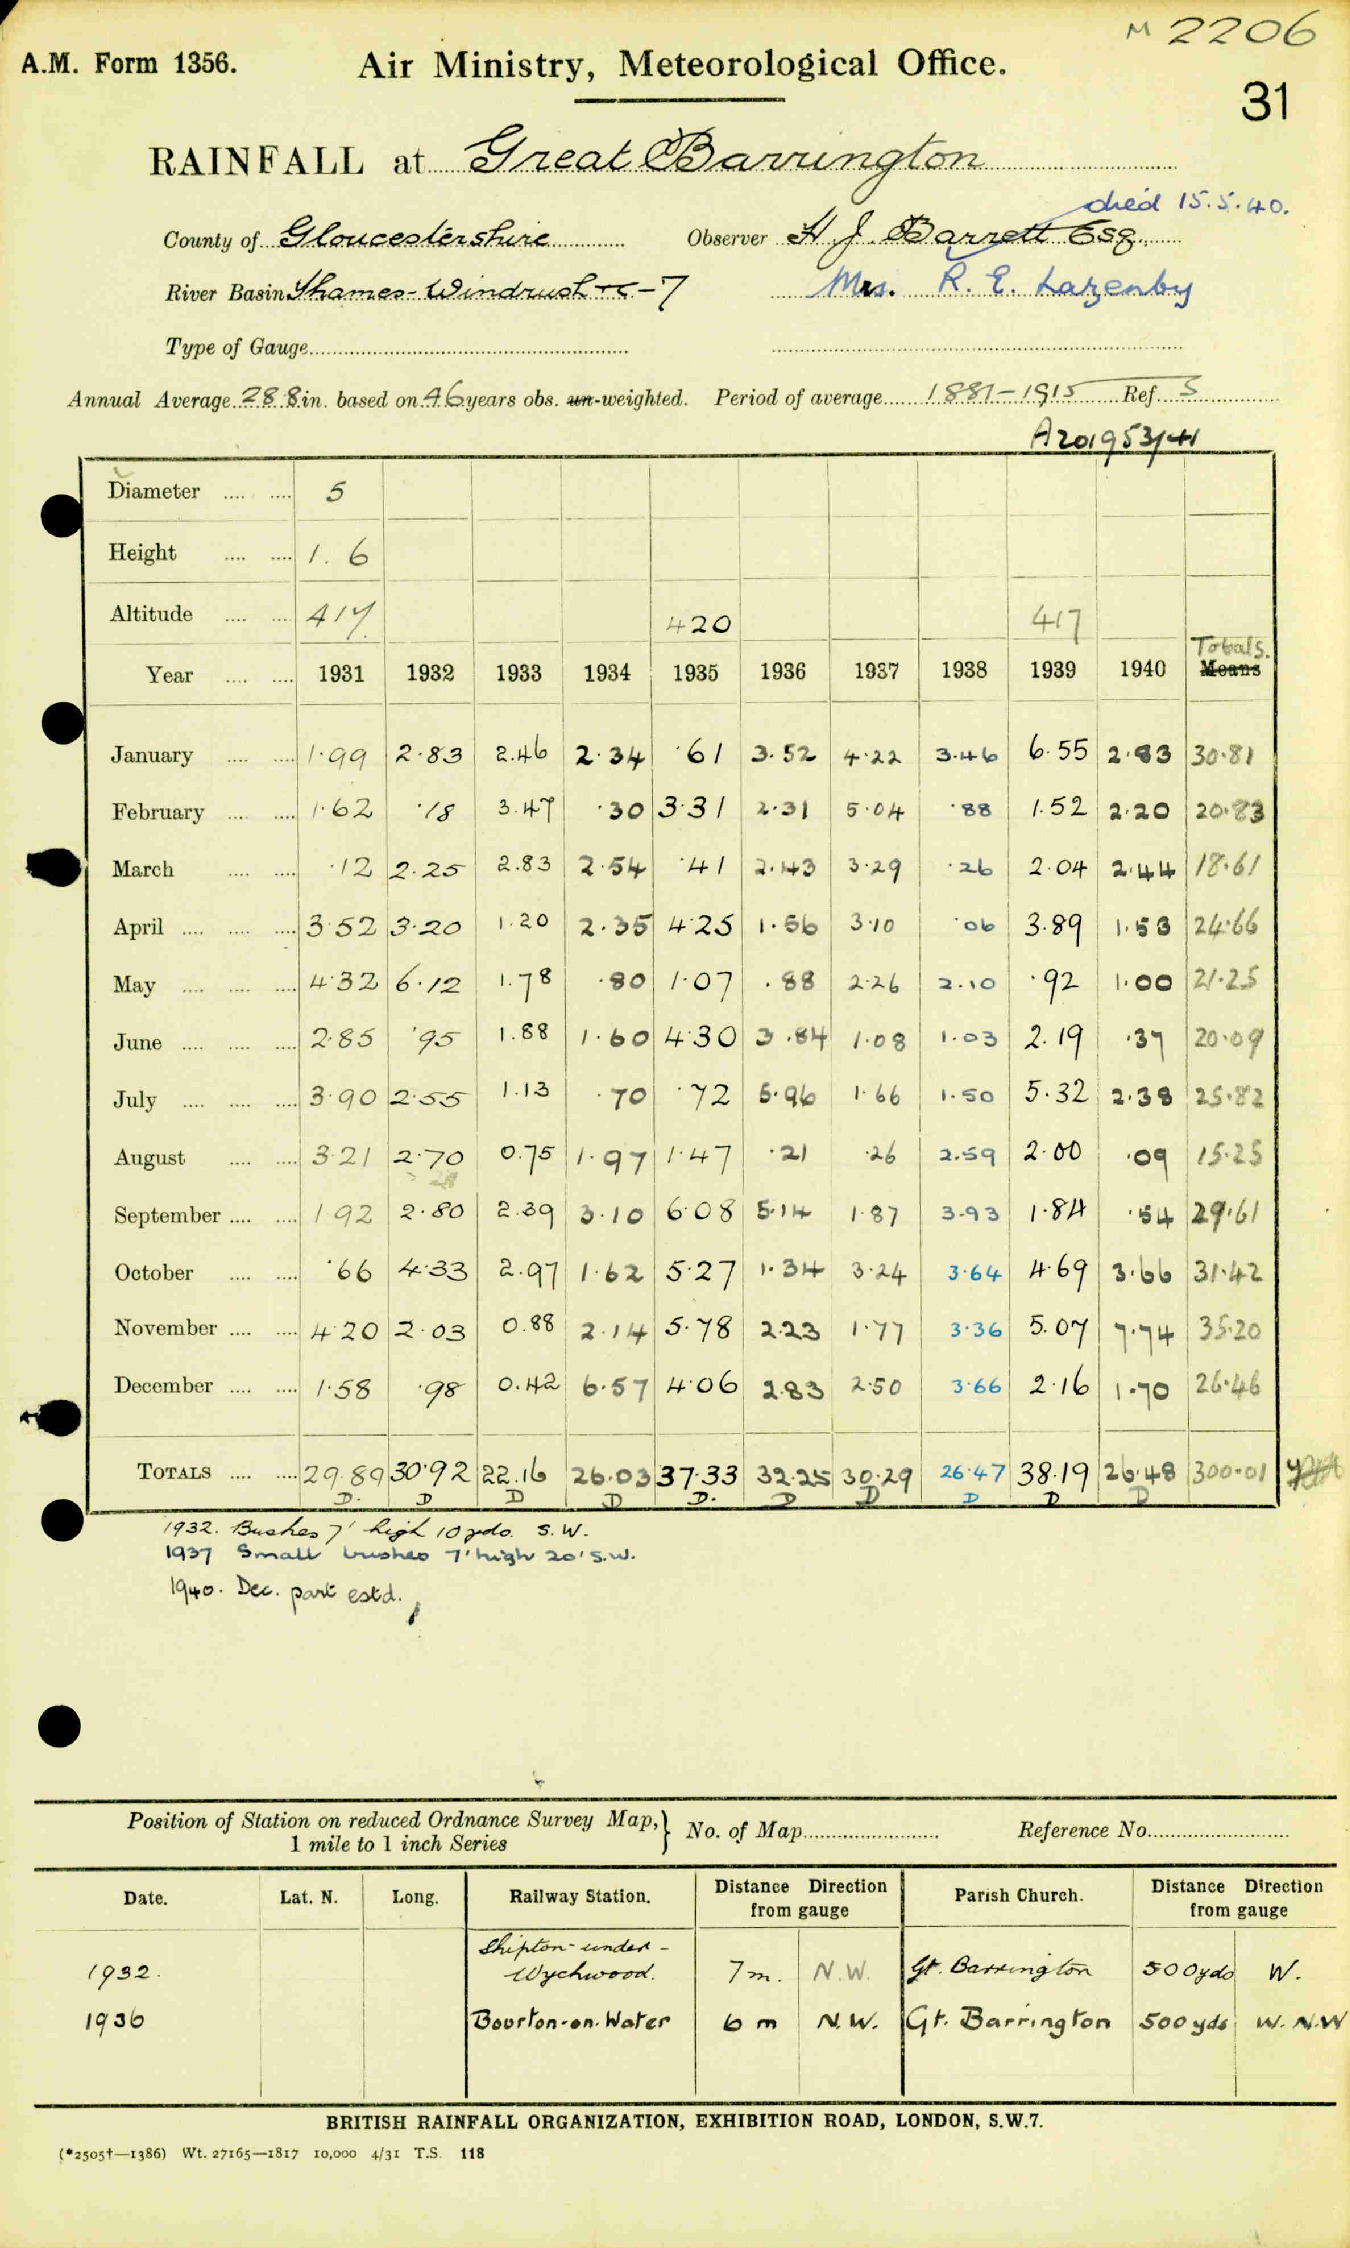 M 2206
A.M. Form 1356. Air Ministry, Meteorological Office.
31
RAINFALL at Great Barrington
died 15.5.40.
County of Gloucestershire Observer H. J. Barrett Esq.
River Basin Thames-Windrush +c -7 Mrs. R. E. Lazenby
Type of Gauge
Annual Average 28.8 in. based on 46 years obs. un-weighted. Period of average 1881-1915 Ref. S
A201953/41
Diameter 5
Height 1. 6
Altitude 417 420 417
Totals.
Year 1931 1932 1933 1934 1935 1936 1937 1938 1939 1940 Means
January 1.99 2.83 2.46 2.34 .61 3.52 4.22 3.46 6.55 2.83 30.81
February 1.62 .18 3.47 .30 3.31 2.31 5.04 .88 1.52 2.20 20.83
March .12 2.25 2.83 2.54 .41 2.43 3.29 .26 2.04 2.44 18.61
April 3.52 3.20 1.20 2.35 4.25 1.56 3.10 .06 3.89 1.53 24.66
May 4.32 6.12 1.78 .80 1.07 .88 2.26 2.10 .92 1.00 21.25
June 2.85 .95 1.88 1.60 4.30 3.84 1.08 1.03 2.19 .37 20.09
July 3.90 2.55 1.13 .70 .72 5.96 1.66 1.50 5.32 2.38 25.82
August 3.21 2.70 0.75 1.97 1.47 .21 .26 2.59 2.00 .09 15.25
September 1.92 2.80 2.39 3.10 6.08 5.14 1.87 3.93 1.84 .54 29.61
October .66 4.33 2.97 1.62 5.27 1.34 3.24 3.64 4.69 3.66 31.42
November 4.20 2.03 0.88 2.14 5.78 2.23 1.77 3.36 5.07 7.74 35.20
December 1.58 .98 0.42 6.57 4.06 2.83 2.50 3.66 2.16 1.70 26.46
TOTALS 29.89 30.92 22.16 26.03 37.33 32.25 30.29 26.47 38.19 26.48 300.01
D. D D D D. D D D D D
1932. Bushes 7' high 10 yds. S.W.
1937 Small bushes 7' high 20' S.W.
1940. Dec. part estd.
Position of Station on reduced Ordnance Survey Map, 1 mile to 1 inch Series } No. of Map Reference No.
Date. Lat. N. Long. Railway Station. Distance Direction from gauge Parish Church. Distance Direction from gauge
Shipton-under-
1932. Wychwood. 7m. N.W. Gt. Barrington 500yds W.
1936 Bourton-on-Water 6 m N.W. Gt. Barrington 500 yds W.N.W
BRITISH RAINFALL ORGANIZATION, EXHIBITION ROAD, LONDON, S.W.7.
(*2505†—1386) Wt. 27165—1817 10,000 4/31 T.S. 118